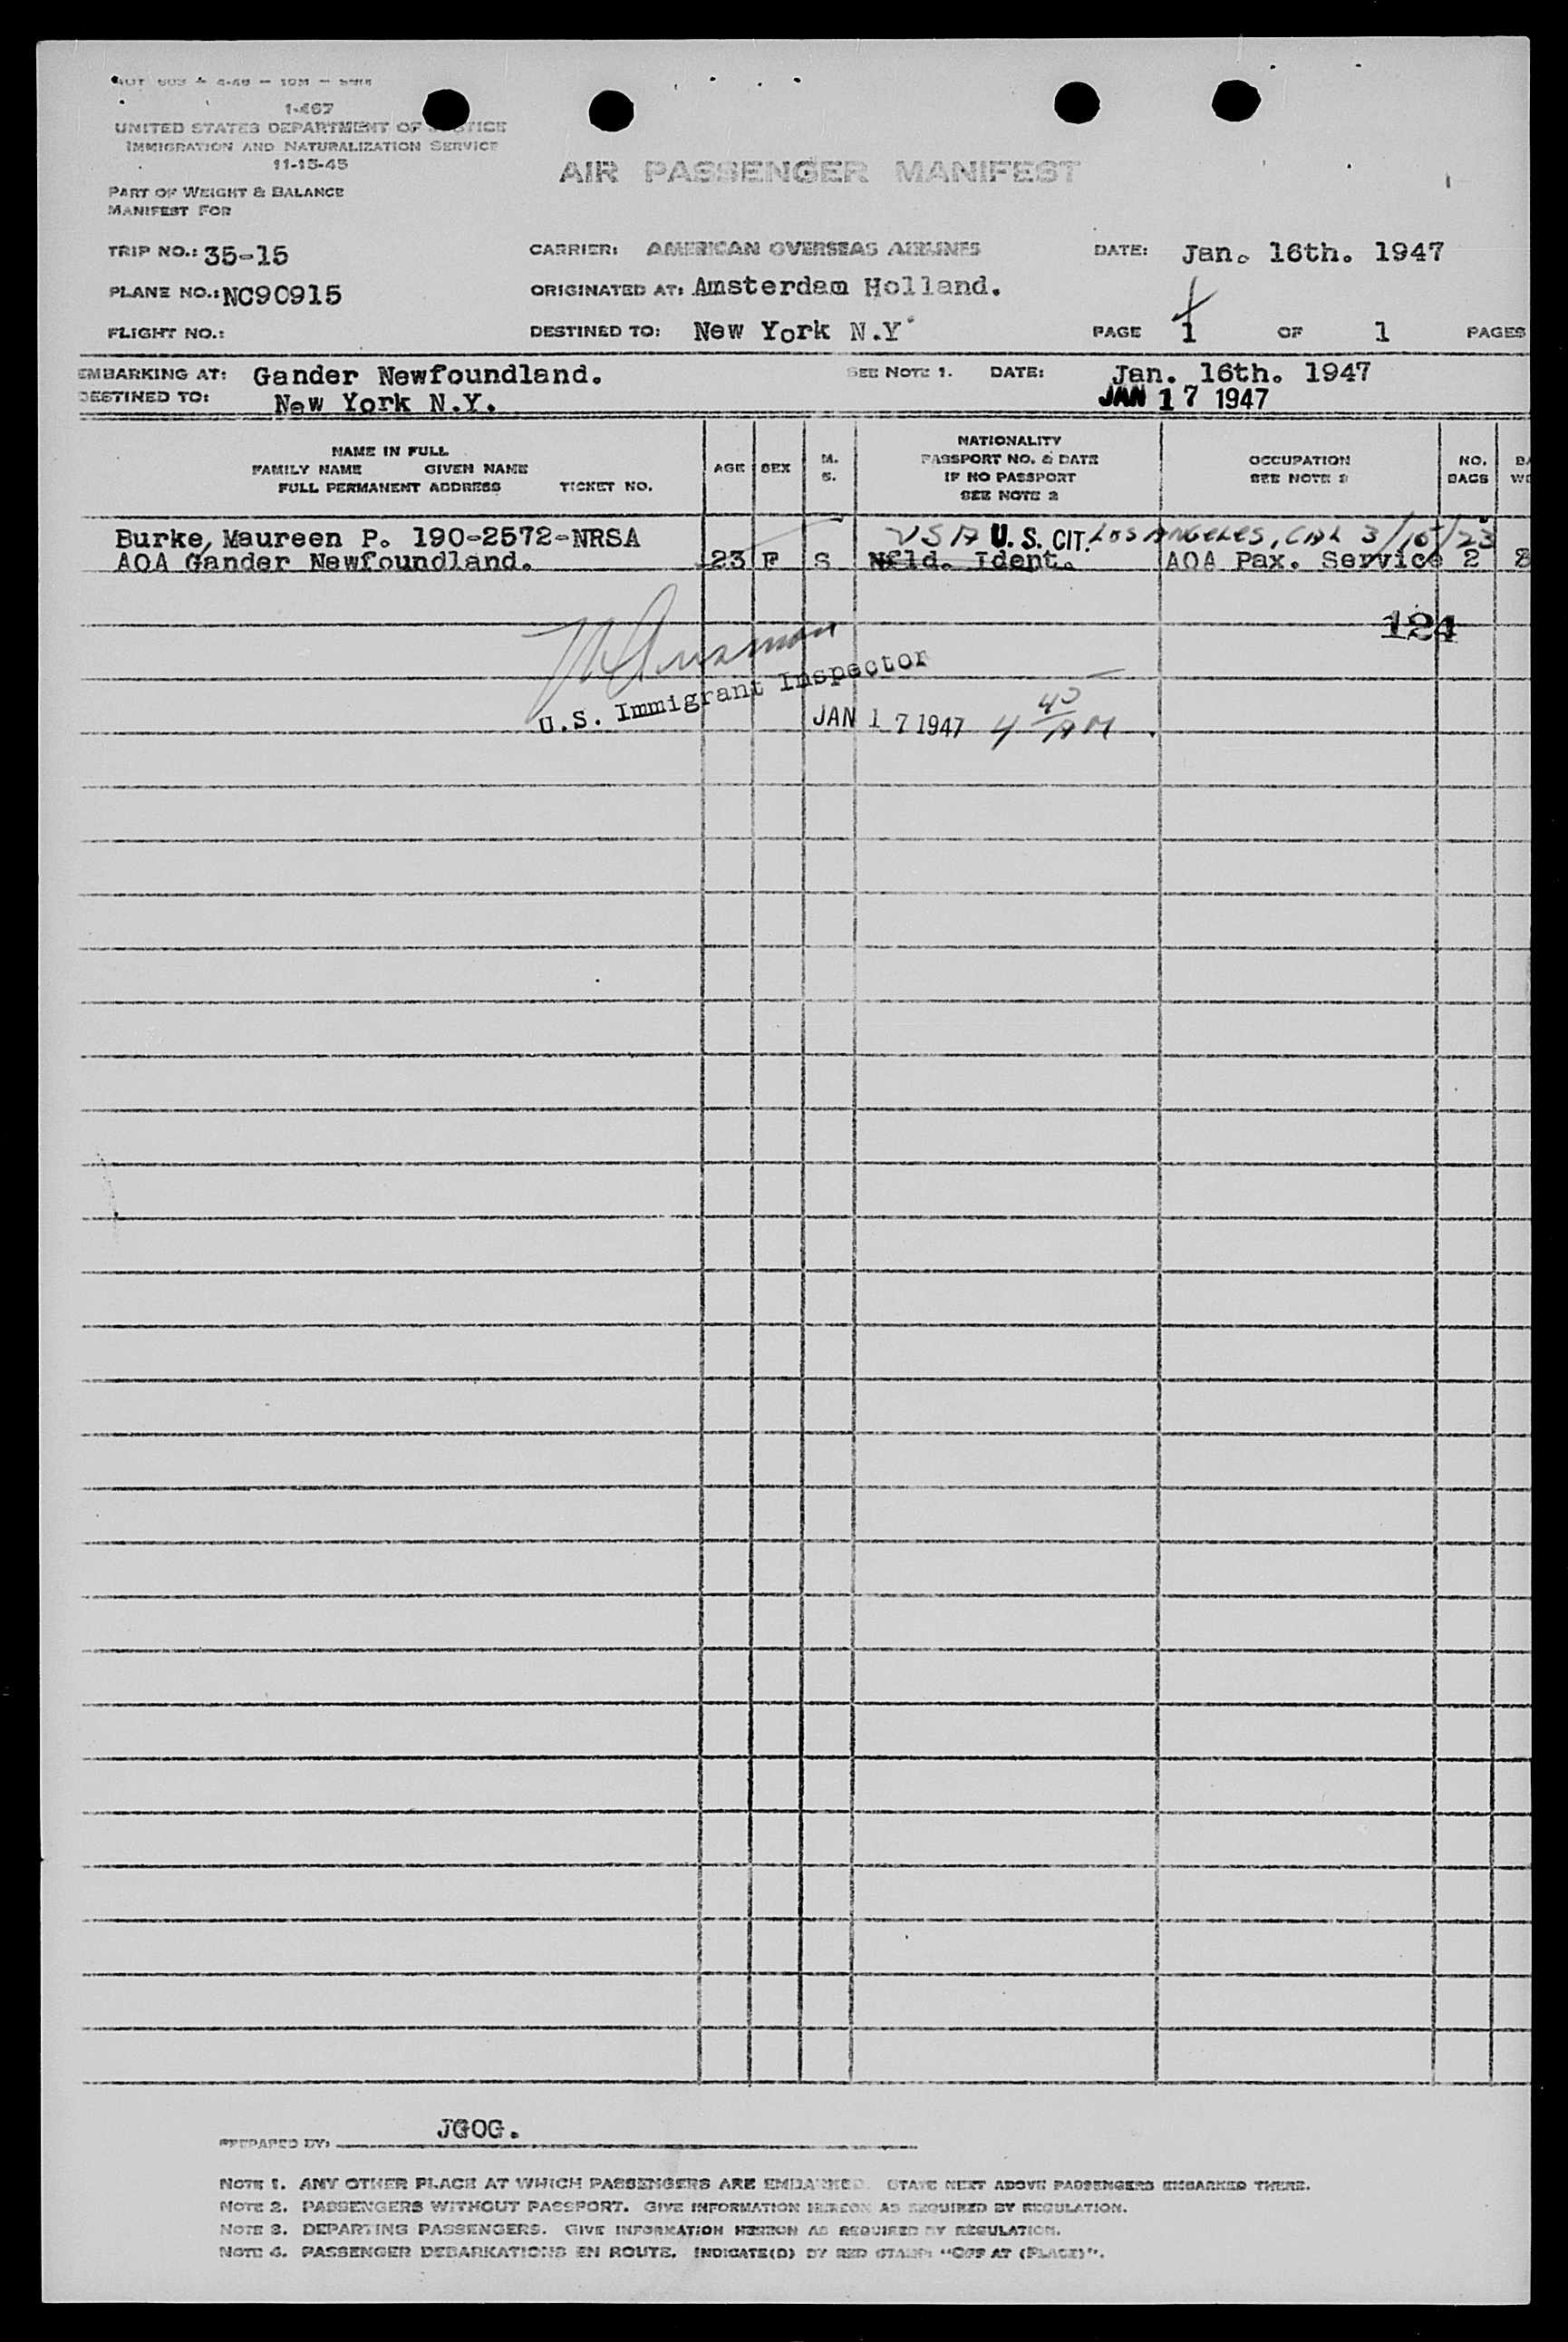 1-467
UNITED STATES DEPARTMENT OF JUSTICE
IMMIGRATION AND NATURALIZATION SERVICE
11-15-45
AIR PASSENGER MANIFEST
PART OF WEIGHT & BALANCE
MANIFEST FOR
TRIP NO.: 35-15 CARRIER: AMERICAN OVERSEAS AIRLINES DATE: Jan. 16th. 1947
PLANE NO.: NC90915 ORIGINATED AT: Amsterdam Holland.
FLIGHT NO.: DESTINED TO: New York N.Y. PAGE 1 OF 1 PAGES
EMBARKING AT: Gander Newfoundland. SEE NOTE 1. DATE: Jan. 16th. 1947
DESTINED TO: New York N.Y. JAN 17 1947
NAME IN FULL
FAMILY NAME GIVEN NAME
FULL PERMANENT ADDRESS TICKET NO.
AGE
SEX
M.
S.
NATIONALITY
PASSPORT NO. & DATE
IF NO PASSPORT
SEE NOTE 2
OCCUPATION
SEE NOTE 3
NO.
BAGS
Burke, Maureen P. 190-2572-NRSA USA U.S. CIT. LOS ANGELES, CAL 3/15/23
AOA Gander Newfoundland. 23 F S Nfld. Ident. AOA Pax. Service 2
124
U.S. Immigrant Inspector
JAN 17 1947 4 45 AM
PREPARED BY: JGOG.
NOTE 1. ANY OTHER PLACE AT WHICH PASSENGERS ARE EMBARKED. STATE NEXT ABOVE PASSENGERS EMBARKED THERE.
NOTE 2. PASSENGERS WITHOUT PASSPORT. GIVE INFORMATION HEREON AS REQUIRED BY REGULATION.
NOTE 3. DEPARTING PASSENGERS. GIVE INFORMATION HEREON AS REQUIRED BY REGULATION.
NOTE 4. PASSENGER DEBARKATIONS EN ROUTE. INDICATE(D) BY RED STAMP "OFF AT (PLACE)".